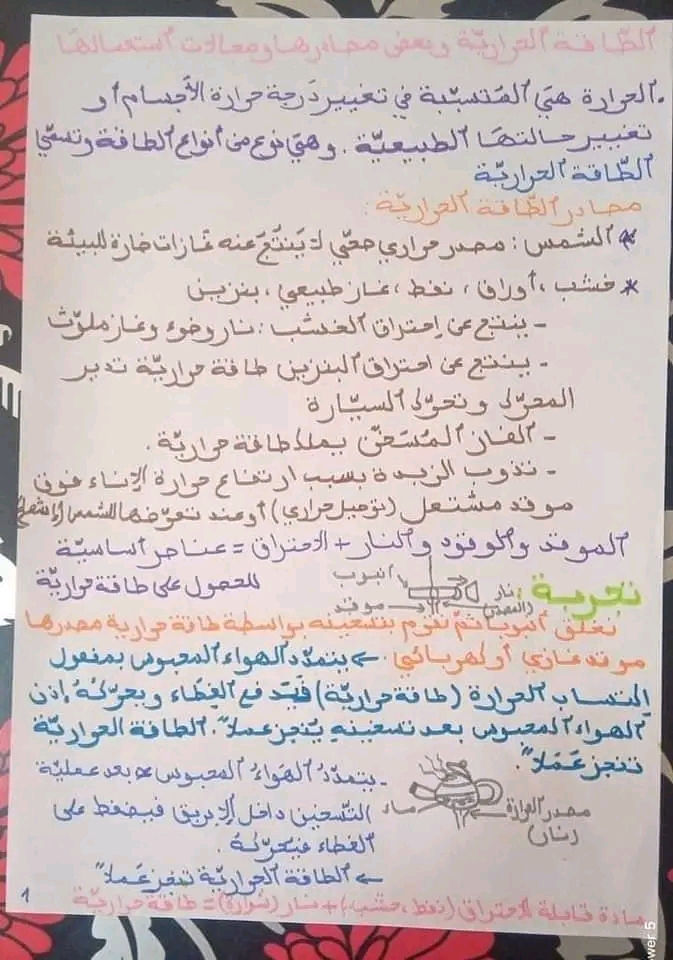 الطّاقة الحراريّة وبعض مصادرها ومجالات استعمالها
.الحرارة هي المُتسبّبة في تغيير دَرجة حرارة الأجسام أو
تغيير حالتها الطبيعيّة . وهي نوع من أنواع الطاقة وتسمّى
الطّاقة الحراريّة
مصادر الطّاقة الحراريّة :
* الشمس : مصدر حراري صحّي لا يَنتُجُ عنه غازات ضارة للبيئة
* خشب ، أوراق ، نفط ، غاز طبيعي ، بنزين
- ينتج عن احتراق الخشب : نار وضوء وغاز ملوّث
- ينتج عن احتراق البنزين طاقة حراريّة تدير
المحرّك وتحرّك السيّارة
- الغاز المُسَخّن يملك طاقة حراريّة .
- تذوب الزبدة بسبب ارتفاع حرارة الإناء فوق
موقد مشتعل (توصيل حراري) أو عند تعرّضها للشمس
الموقد والوقود والنار + الاحتراق = عناصر أساسيّة
للحصول على طاقة حراريّة
تجربة :
أنبوب
نار
موقد
نغلق أنبوبا ثمّ نقوم بتسخينه بواسطة طاقة حرارية مصدرها
موقد غازي أو كهربائي . ← يتمدّد الهواء المحبوس بمفعول
اكتساب الحرارة (طاقة حراريّة) فيَدفع الغِطاء ويحرّكهُ إذن
الهواء المحبوس بعد تسخينه يُنجز عملاً". الطاقة الحراريّة
تنجز عَمَلاً".
- يتمدّدُ الهَواءُ المحبوس بعد عمليّة
التّسخين داخل الإبريق فيضغط على
الغطاء فيُحرّكهُ .
← الطاقة الحراريّة تنجز عَملاً"
ماء
مصدر الحرارة
(نار)
مادة قابلة للاحتراق (نفط ، خشب..) + نار (شرارة) = طاقة حراريّة
1
wer 5